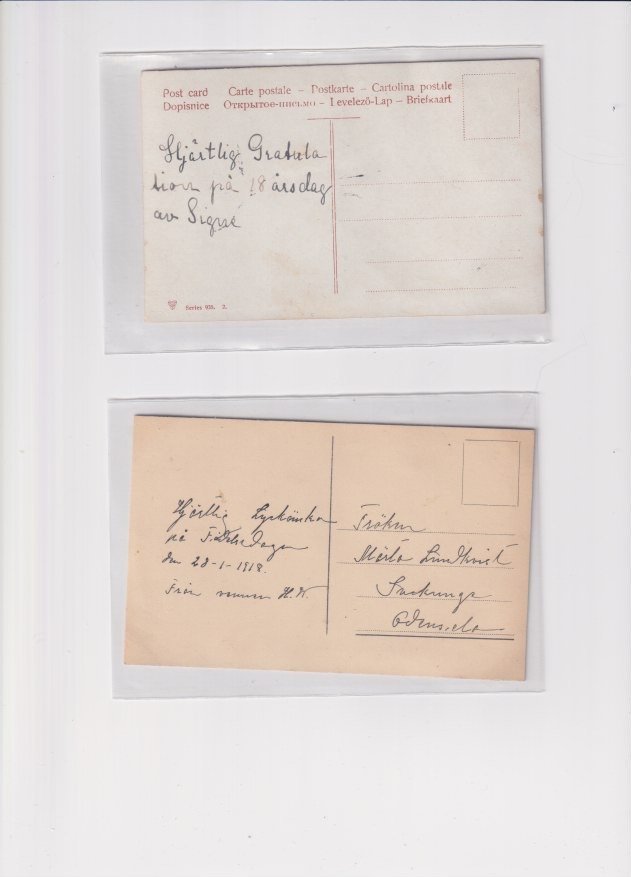 Post card Carte postale – Postkarte – Cartolina postale
Dopisnice Открытое-письмо – Levelező-Lap – Briefkaart
Hjärtlig Gratula
tion på 18 årsdag
av Signe
Series 938. 2.
Hjärtlig Lyckönskan
på Födelsedagen
den 28-1-1918.
Från vännen H. W.
Fröken
Märta Lindkvist
Odensala